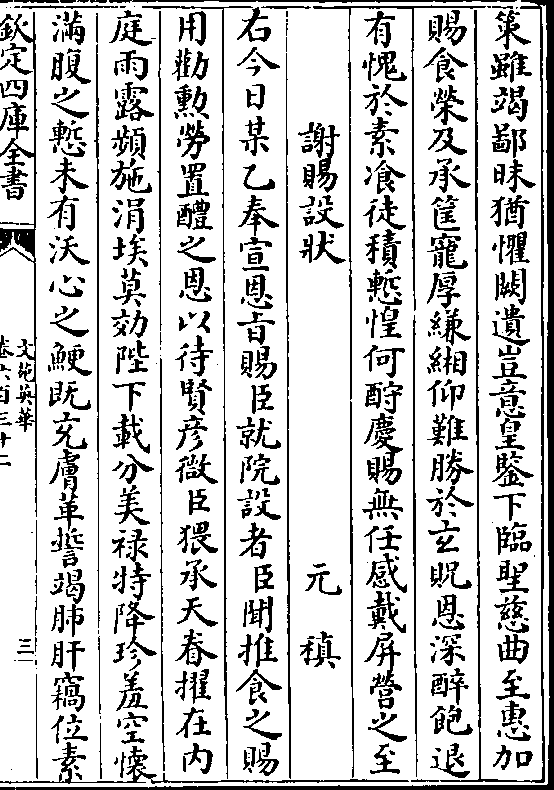 策雖竭鄙昧猶懼闕遺豈意皇鑒下臨聖慈曲至惠加
賜食榮及承筐寵厚縑緗仰難勝於玄貺恩深醉飽退
有愧於素飡徒積慙惶何酧慶賜無任感戴屏營之至
謝賜設狀　元稹
右今日某乙奉宣恩旨賜臣就院設者臣聞推食之賜
用勸勲勞置醴之恩以待賢彦微臣猥承天眷擢在内
庭雨露頻施涓埃莫効陛下載分美禄特降珍羞空懐
滿腹之慙未有沃心之鯁既充膚革誓竭肺肝竊位素
欽定四庫全書
文苑英華
卷六百三十二
三